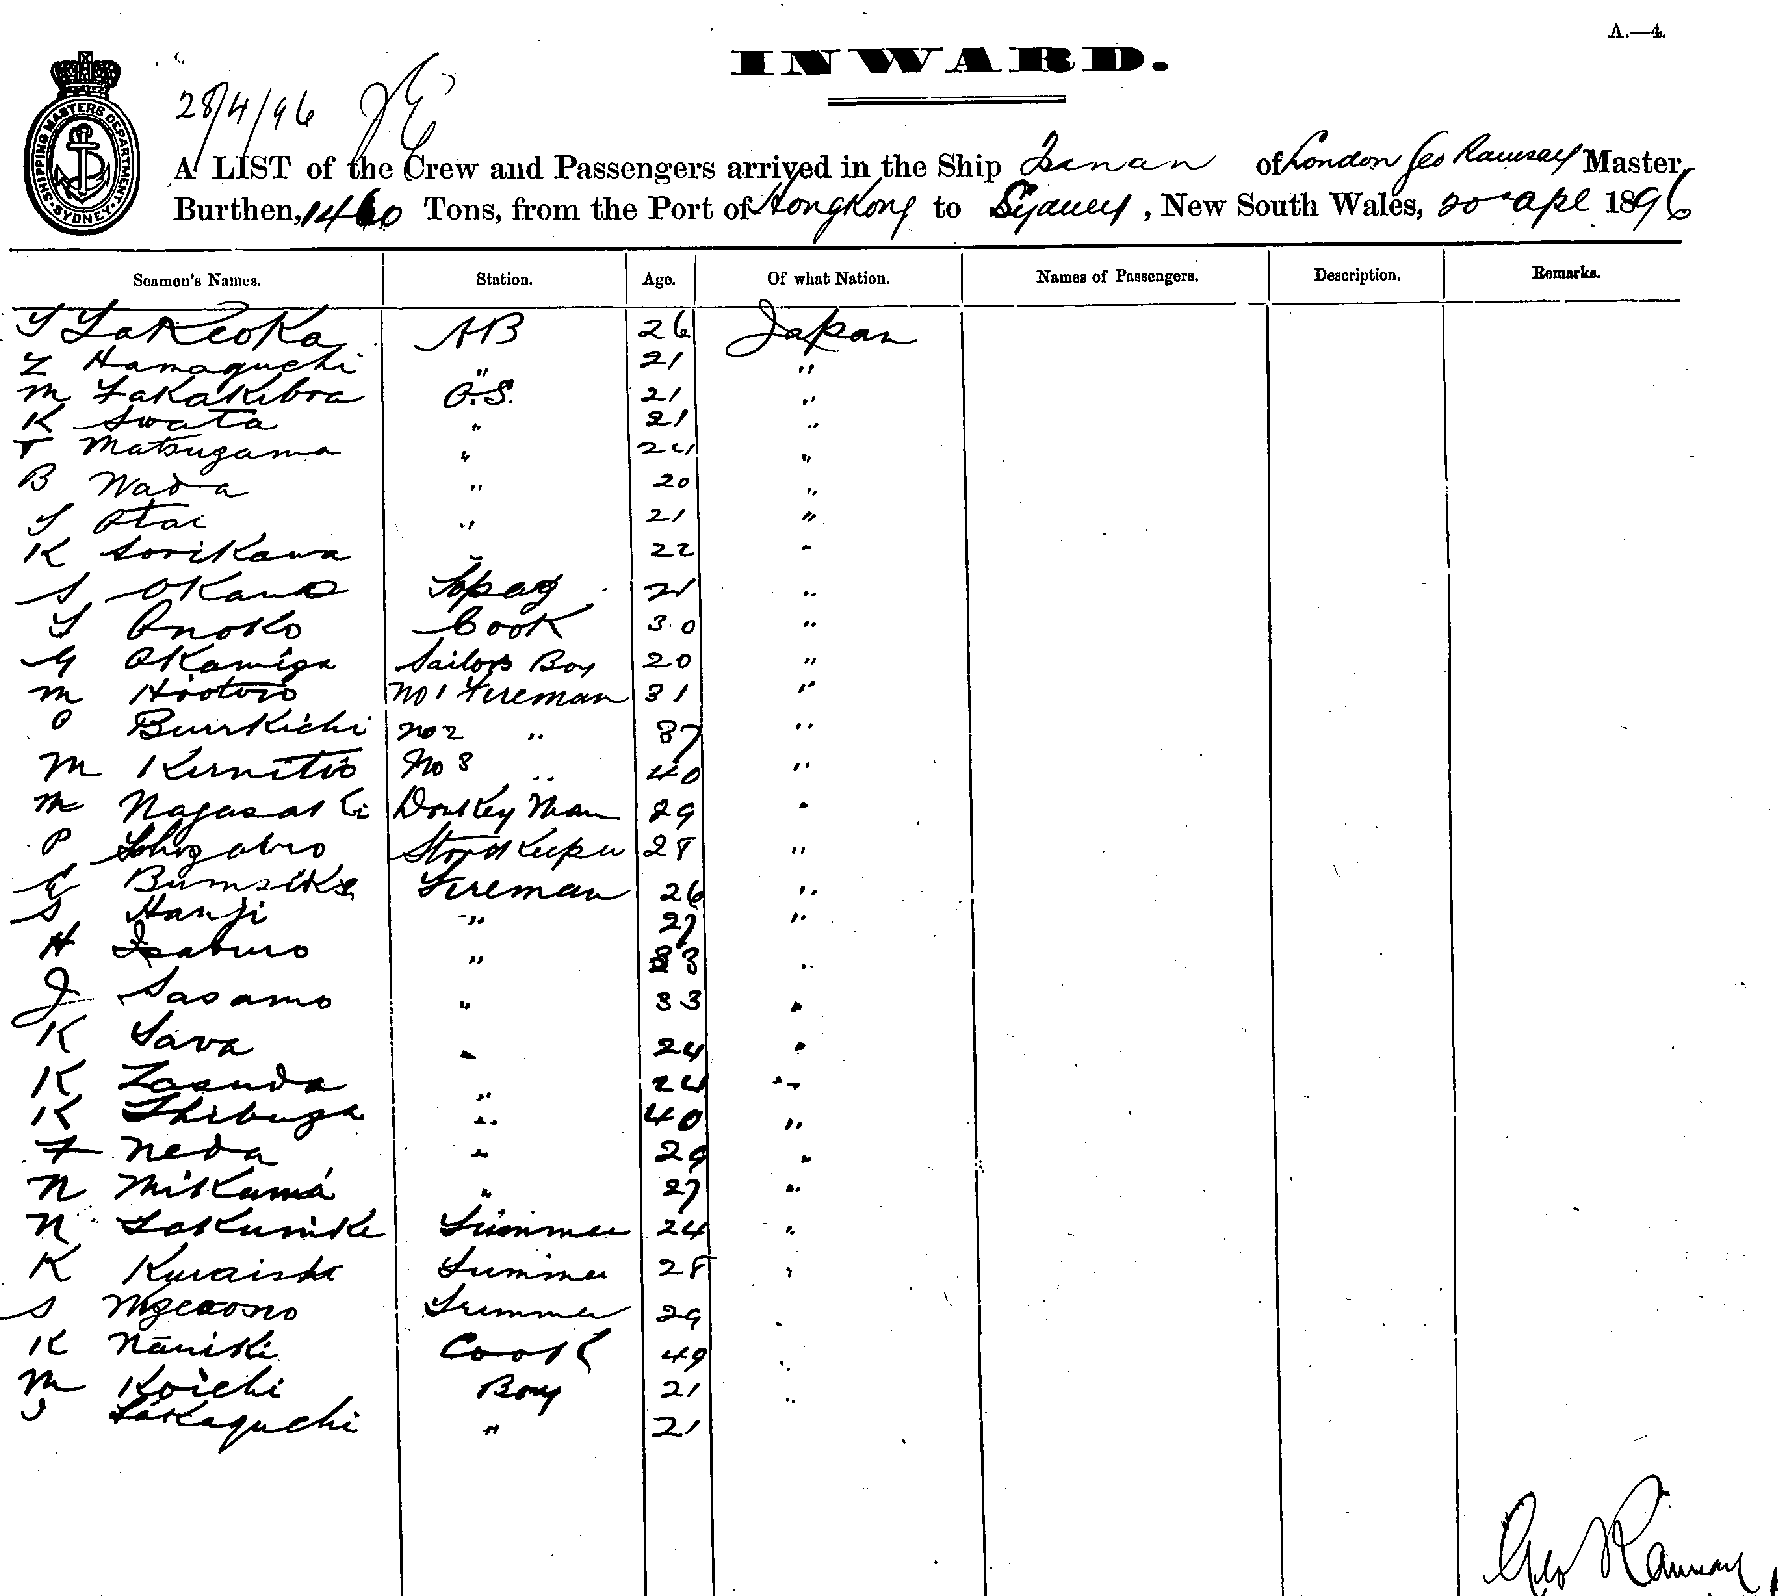 A.—4.
INWARD.
28/4/96
SHIPPING MASTERS DEPARTMENT SYDNEY
A LIST of the Crew and Passengers arrived in the Ship Tsinan of London Geo Ramsay Master,
Burthen, 1460 Tons, from the Port of Hongkong to Sydney, New South Wales, 20 apl 1896
Seamen's Names. Station. Age. Of what Nation. Names of Passengers. Description. Remarks.
Takeoka AB 26 Japan
Hamaguchi " 21 "
M O.S. 21 "
K " 21 "
T Matsugama " 24 "
B Wada " 20 "
Otai " 21 "
K Sorikawa " 22 "
S Okano 21 "
Cook 30 "
Okamiga Sailors Boy 20 "
M No 1 Fireman 31 "
No 2 " 37 "
M No 3 " 40 "
M Nagasaki Donkey Man 29 "
P Storekeeper 28 "
Fireman 26 "
S Hanji " 27 "
H Isaburo " "
J Sasamo " 33 "
K Sava " 24 "
K " 24 "
K Shibuga " 40 "
Neda " 29 "
N Mikama " 27 "
N Trimmer 24 "
K Trimmer 28 "
S Trimmer 29
K Naniki Cook 49 "
M Koichi Boy 21 "
" 21
Geo Ramsay